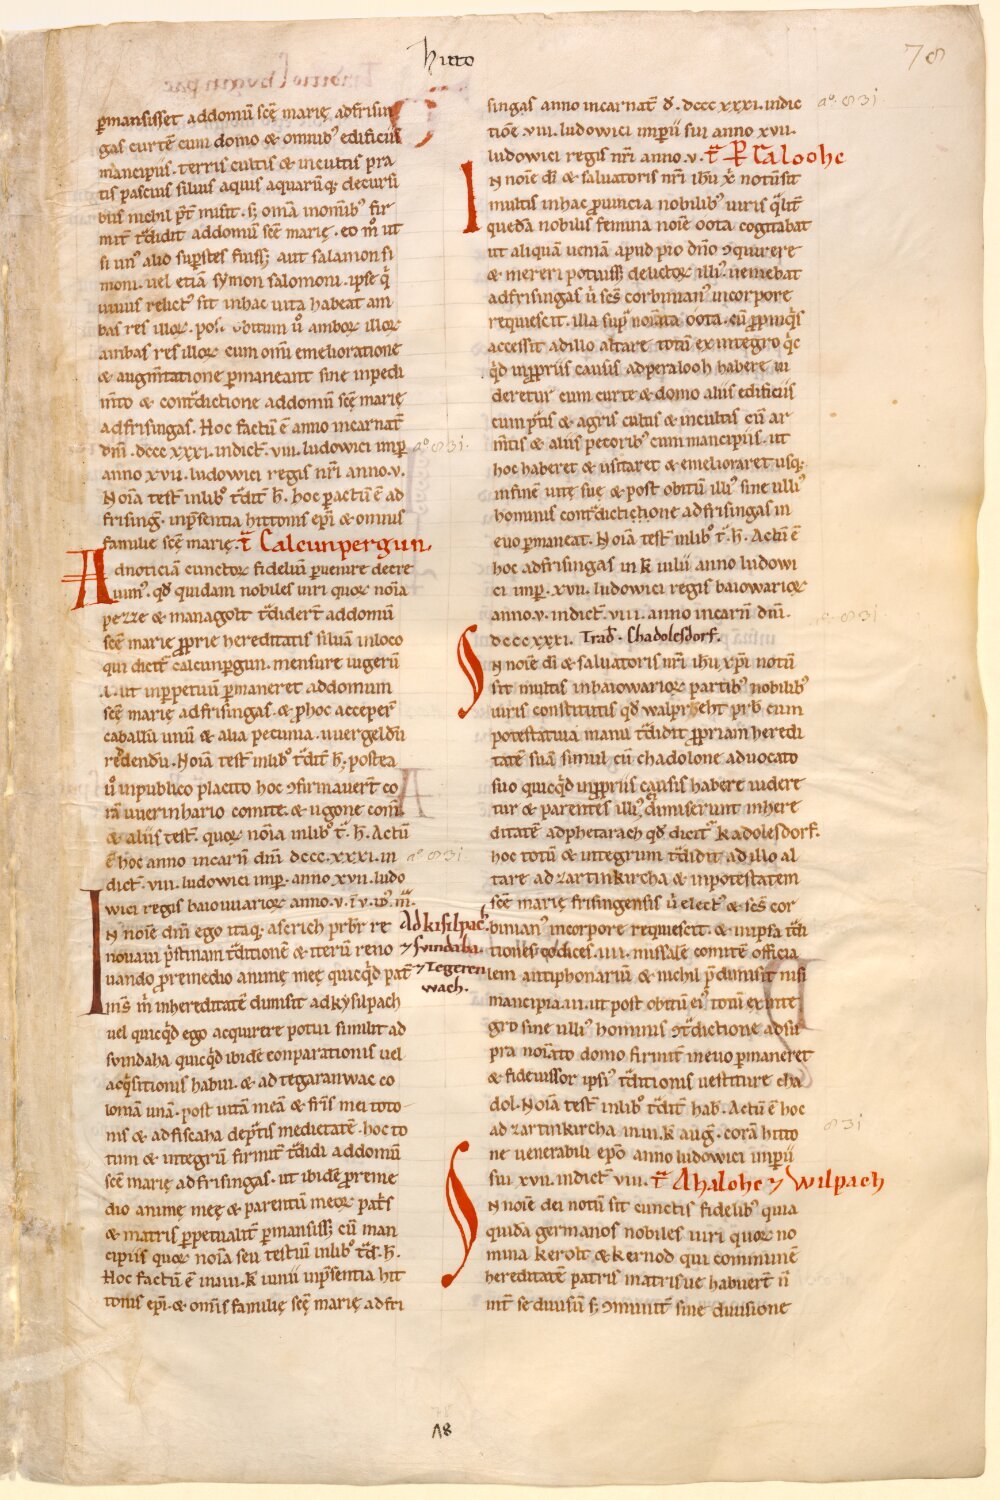 Hitto
78
ꝑmansisset ad domū scē marię ad frisin
gas curtē cum domo & omnib⁹ edificiis
mancipiis. terris cultis & incultis pra
tis pascuis siluis aquis aquarūq; decursi
bus nichil p̄t misit. s; om̄a in om̄ib⁹ fir
mit̄ t͛didit ad domū scē marię. eo m̊ ut
si un⁹ alio sup̄stes fuiss; aut salamon si
moni. uel etiā symon salomoni. ipse q̓
uiuus relict⁹ sit in hac uita habeat am
bas res illoꝝ. obitum ů amboꝝ illoꝝ
ambas res illoꝝ cum om̄i emelioratione
& augm̄tatione ꝑmaneant sine inpedi
m̄to & cont͛dictione ad domū scē marię
ad frisingas. Hoc factū ē anno incarnat̄
dn̄i. dcccxxxi. indict̄. viii. ludowici imꝑ
a° 831.
anno xvii. ludowici regis nr̄i anno. v.
Noīa test̄ in lib͛o t͛dit̄ h̄. hoc ꝑactū ē ad
frisinḡ. in p̄sentia hittonis ep̄i & omnis
familie scē marię. t͛ Calcunpergun.
Ad noticiā cunctoꝝ fideliū ꝑuenire decre
uim⁹. qd̄ quidam nobiles uiri quoꝝ noīa
pezze & managolt t͛didert̄ ad domū
scē marię ꝓprie hereditatis siluā in loco
qui dict̄ calcunꝑgun. mensure iugerū
.l. ut in ꝑpetuū ꝑmaneret ad domum
scē marię ad frisingas. & ꝓ hoc acceper̄
caballū unū & alia pecunia. uuergeldū
reddendū. Noīa test̄ in lib͛o t͛dit̄ h̄. postea
ů in publico placito hoc ꝯfirmauert̄ co
rā uuerinhario comite. & ugone com̄.
& aliis test̄. quoꝝ noīa in lib͛o t͛. h̄. Actū
ē hoc anno incarn̄ dn̄i dccc.xxxi. in
a° 831.
dict̄. viii. ludowici imꝑ. anno xvii. ludo
wici regis baiouuarioꝝ anno. v.
In noīe dn̄i ego itaq; aserich prb̄r re
Ad kisilpach.
nouaui p̄stinam t͛ditionē & iterū reno
⁊ Svindaha.
uando ꝓ remedio animę meę quicq̓d pat̄
⁊ Tegeren
wach.
in hereditatē dimisit ad kysilpach
uel quicq̓d ego acquirere potui similit̄ ad
svindaha quicq̓d ibidē conparationis uel
acq̓sitionis habui. & ad tegaranwac co
loniā unā. post uitā meā & fr̄is mei toto
nis & ad fiscaha de p̄tis medietatē. hoc to
tum & integrū firmit̄ t͛didi ad domū
scē marię ad frisingas. ut ibidē ꝓ reme
dio animę meę & parentū meoꝝ pat͛s
& matris ꝑpetualit̄ ꝑmansiss; cū man
cipiis quoꝝ noīa seu testiū in lib͛o t͛d̄. h̄.
Hoc factū ē in iiii. k̄ iunii in p̄sentia hit
tonis ep̄i. & om̄is familię scē marię ad fri
singas anno incarnat̄ d̄. dccc xxxi. indic
a° 831.
tiōe. viii. ludowici imꝑii sui anno xvii.
ludowici regis nr̄i anno. v. t͛ P̄ CalooHc
In noīe dī & saluatoris nr̄i ihū x̄ notū sit
multis in hac ꝓuincia nobilib⁹ uiris q̓lit̄
quedā nobilis femina noīe oota cogitabat
ut aliquā ueniā apud pio dn̄o ꝯquirere
& mereri potuiss; delictoꝝ illi⁹. ueniebat
ad frisingas u̇ scs̄ corbinian⁹ in corpore
requiescit. illa sup͛ noīata oota. cū ꝓpinq̓s
accessit ad illo altare totū ex integro q̓c
q̓d in ꝓpriis causis ad peralooh habere ui
deretur cum curte & domo aliis edificiis
cum p̄tis & agris cultis & incultis cū ar
m̄tis & aliis pecorib⁹ cum mancipiis. ut
hoc haberet & usitaret & emelioraret usq;
in finē uitę suę & post obitū illi⁹ sine ulli⁹
hominis cont͛dictichione ad frisingas in
euo ꝑmaneat. Noīa test̄ in lib͛o t͛. h̄. Actū ē
hoc ad frisingas in k̄ iulii anno ludowi
ci imꝑ. xvii. ludowici regis baiowarioꝝ
anno. v. indict̄. viii. anno incarn̄ dn̄i.
a° 831
dccccxxxi. Trad̄. Chadolesdorf.
In noīe dī & saluatoris nr̄i ihū xp̄i notū
sit multis in baiowarioꝝ partib⁹ nobilib⁹
uiris constitutis qd̄ walpreht prb̄ cum
potestatiua manu t͛didit ꝓpriam heredi
tatē suā simul cū chadolone aduocato
suo quicq̓d in ꝓpriis causis habere uidere
tur & parentes illi⁹ dimiserunt in here
ditatē ad phetarach qd̄ dicit̄ kadolesdorf.
hoc totū & integrum t͛didit ad illo al
tare ad zartinkircha & in potestatem
scē marię frisingensis u̇ elect⁹ & scs̄ cor
binian⁹ in corpore requiescit. & in ipsa t͛di
tiones codices. iiii. missalē comitē officia
lem antiphonariū & nichil p̄dimisit nisi
mancipia. iii. ut post obitū ei⁹ totū ex inte
gro sine ulli⁹ hominis ꝯt͛dictione ad su
pra noīato domo firmit̄ in euo ꝑmaneret
& fideiussor ipsi⁹ t͛ditionis uestiture cha
dol. Noīa test̄ in lib͛o t͛dit̄ hab̄. Actū ē hoc
ad zartinkircha in iii. k̄ auḡ. corā hitto
831
ne uenerabili ep̄o anno ludowici imꝑii
sui xvii. indict̄ viii. t͛ Ahalohc ⁊ Wilpach
In noīe dei notū sit cunctis fidelib⁹ quia
quidā germanos nobiles uiri quoꝝ no
mina kerolt & kernod qui communē
hereditatē patris matrisue habuert̄ n̄
int̄ se diuisū s; ꝯmunit̄ sine diuisione
78